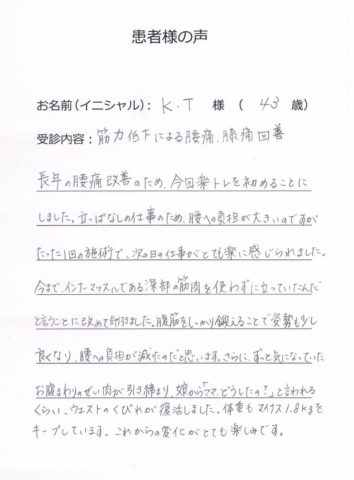 患者様の声
お名前(イニシャル): K・T 様 ( 43 歳)
受診内容: 筋力低下による腰痛、膝痛回善
長年の腰痛改善のため、今回楽トレを初めることに
しました。立っぱなしの仕事のため、腰への負担が大きいのですが
たった1回の施術で、次の日の仕事がとても楽に感じられました。
今まで、インナーマッスルである深部の筋肉を使わずに立っていたんだ
と言うことに改めて
腹筋をしっかり鍛えることで姿勢も少し
良くなり、腰への負担が減ったのだと思います。さらに、ずっと気になっていた
お腹まわりのぜい肉が引き締まり、娘から「ママ、どうしたの?」と言われる
くらい、ウエストのくびれが復活しました。体重もマイナス1.8kgを
キープしています。これからの変化がとても楽しみです。